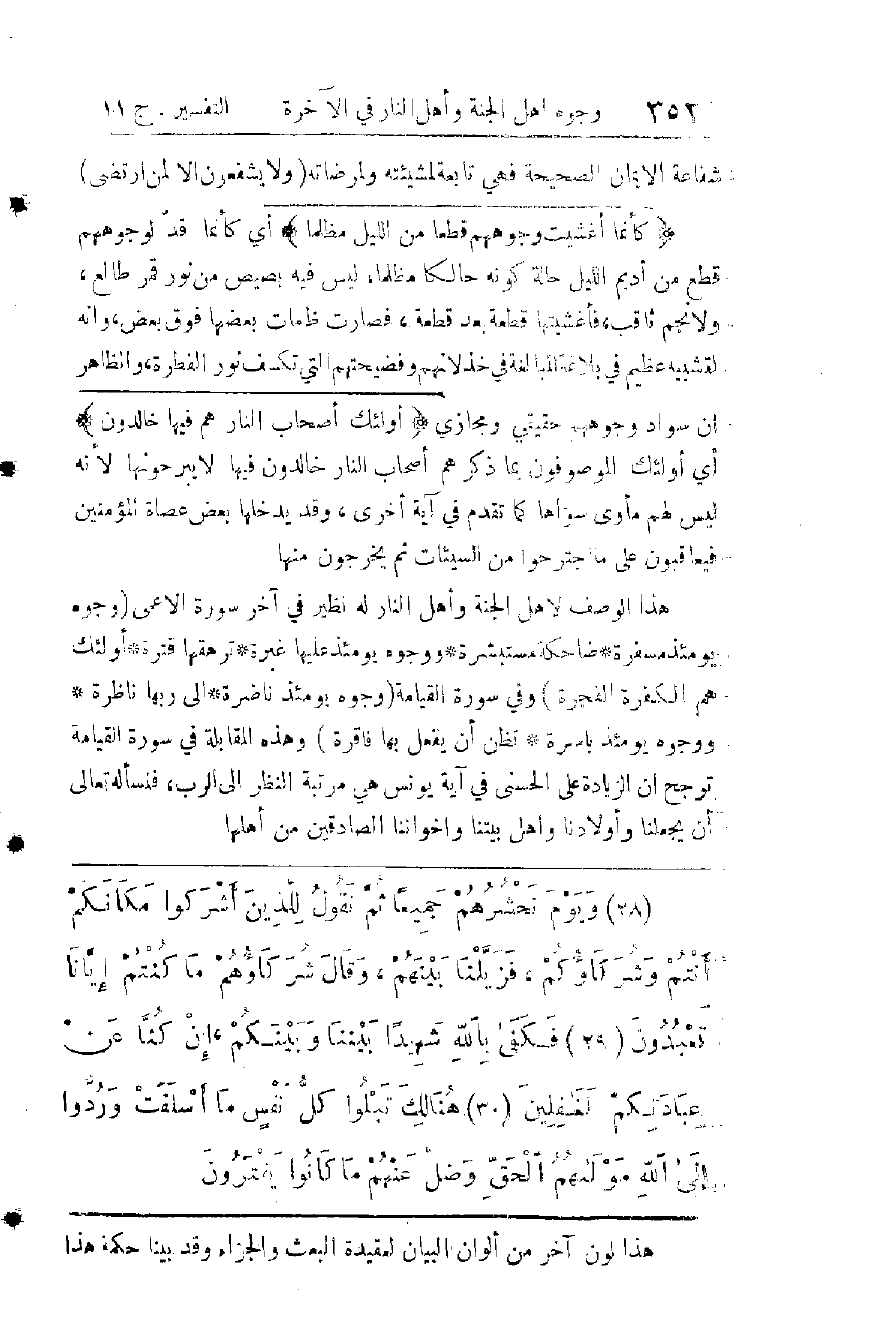 ٣٥٢ وجوه اهل الجنة وأهل النار في الآخرة التفسير . ج ١١
شفاعة الايمان الصحيحة فهي تابعة لمشيئته ولمرضاته ( ولا يشفعون الا لمن ارتضى )
﴿ كأنما أغشيت وجوههم قطعا من الليل مظلما ﴾ أي كأنما قدّ لوجوههم
قطع من أديم الليل حالة كونه حالكا مظلما، ليس فيه بصيص من نور قمر طالع ،
ولا نجم ثاقب، فأغشيتها قطعة بعد قطعة ، فصارت ظلمات بعضها فوق بعض، وانه
لتشبيه عظيم في بلاغة المبالغة في خذلانهم وفضيحتهم التي تكسف نور الفطرة، والظاهر
ان سواد وجوههم حقيقي ومجازي ﴿ أولئك أصحاب النار هم فيها خالدون ﴾
أي أولئك الموصوفون بما ذكر هم أصحاب النار خالدون فيها لا يبرحونها لأنه
ليس لهم مأوى سواها كما تقدم في آية أخرى ، وقد يدخلها بعض عصاة المؤمنين
فيعاقبون على ما اجترحوا من السيئات ثم يخرجون منها
هذا الوصف لاهل الجنة وأهل النار له نظير في آخر سورة الاعمى ( وجوه
يومئذ مسفرة * ضاحكة مستبشرة * ووجوه يومئذ عليها غبرة * ترهقها قترة * أولئك
هم الكفرة الفجرة ) وفي سورة القيامة ( وجوه يومئذ ناضرة * الى ربها ناظرة *
ووجوه يومئذ باسرة * تظن أن يفعل بها فاقرة ) وهذه المقابلة في سورة القيامة
ترجح ان الزيادة على الحسنى في آية يونس هي مرتبة النظر الى الرب، فنسأله تعالى
أن يجعلنا وأولادنا واهل بيتنا واخواننا الصادقين من أهلها
(٢٨) وَيَوْمَ نَحْشُرُهُمْ جَمِيعًا ثُمَّ نَقُولُ لِلَّذِينَ أَشْرَكُوا مَكَانَكُمْ
أَنْتُمْ وَشُرَكَاؤُكُمْ ، فَزَيَّلْنَا بَيْنَهُمْ ، وَقَالَ شُرَكَاؤُهُمْ مَا كُنْتُمْ إِيَّانَا
تَعْبُدُونَ (٢٩) فَكَفَىٰ بِٱللهِ شَهِيدًا بَيْنَنَا وَبَيْنَكُمْ ، إِنْ كُنَّا عَنْ
عِبَادَتِكُمْ لَغَٰفِلِينَ (٣٠) هُنَالِكَ تَبْلُوا كُلُّ نَفْسٍ مَا أَسْلَفَتْ وَرُدُّوا
إِلَىٰ ٱللهِ مَوْلَٰهُمُ ٱلْحَقِّ وَضَلَّ عَنْهُمْ مَا كَانُوا يَفْتَرُونَ
هذا لون آخر من ألوان البيان لعقيدة البعث والجزاء وقد بينا حكمة هذا